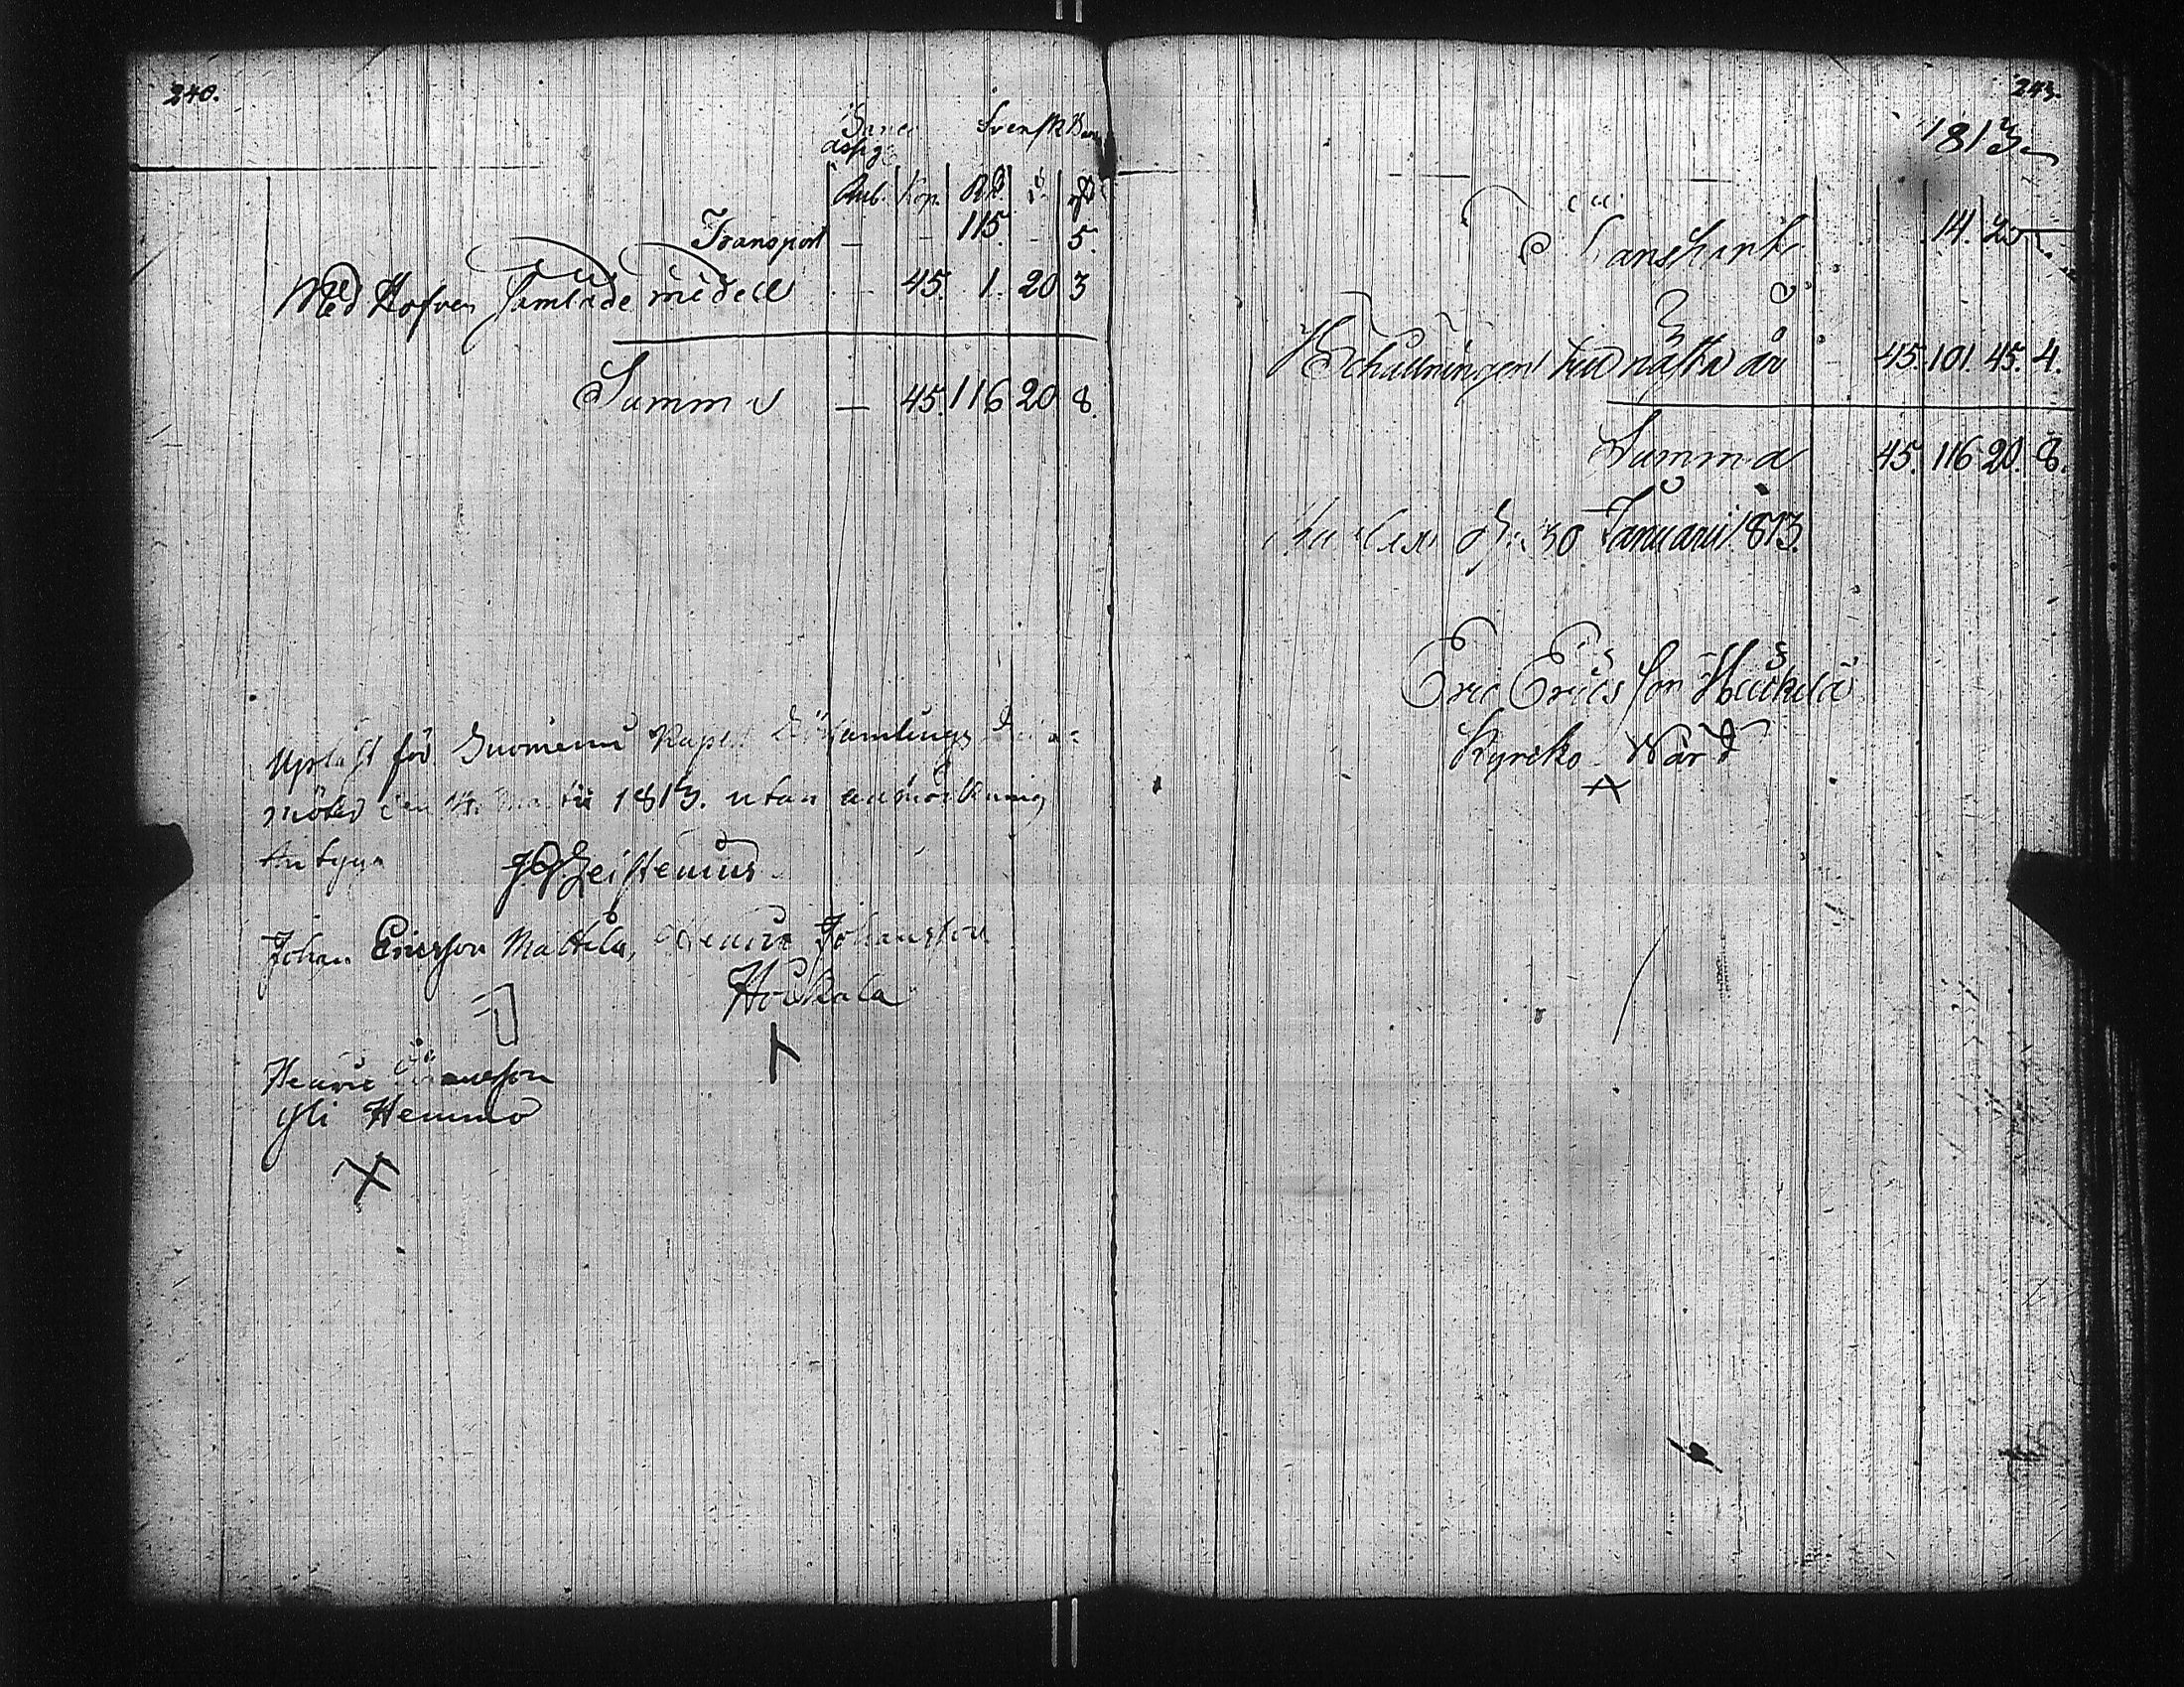 240.
Banco Svensk Banco
assig:
Rub. Kop. Rd. s. rst
Transport — — 115. - 5.
Med Hofven samlade medell - 45. 1. 20 3
Summa — 45. 116 20 8.
Upläst för Suomenni Kapell Församlings
möte den 14 Martii 1813. utan anmärkning
Johan Ericsson Mattila, Henric Johansson
Houkala
Henric
Yli Hemmo
243.
1813
Transport 14. 20
Behållningen till nästa år 45. 101. 45. 4.
Summa 45. 116 20. 8.
d. 30 Januarii 1813.
Eric Ericsson
Kyrcko Wärd